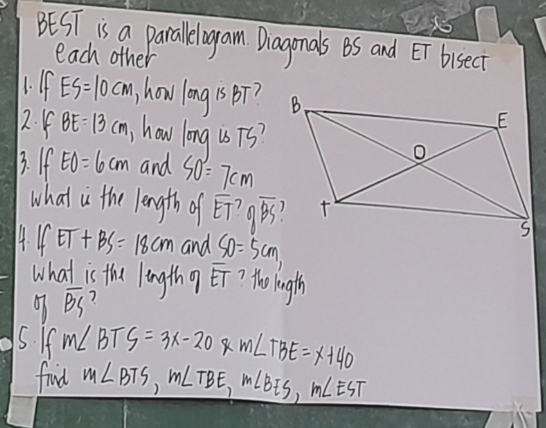 BEST is a parallelogram. Diagonals BS and ET bisect
each other
1. If ES=10cm, how long is BT?
2. If BE=13cm, how long is TS?
3. If EO=6cm and SO=7cm
what is the length of ET? of BS?
4. If ET+BS=18cm and SO=5cm,
what is the length of ET? the length
of BS?
5. If m∠BTS=3x-20 & m∠TBE=x+40
find m∠BTS, m∠TBE, m∠BES, m∠EST
B
E
O
T
S